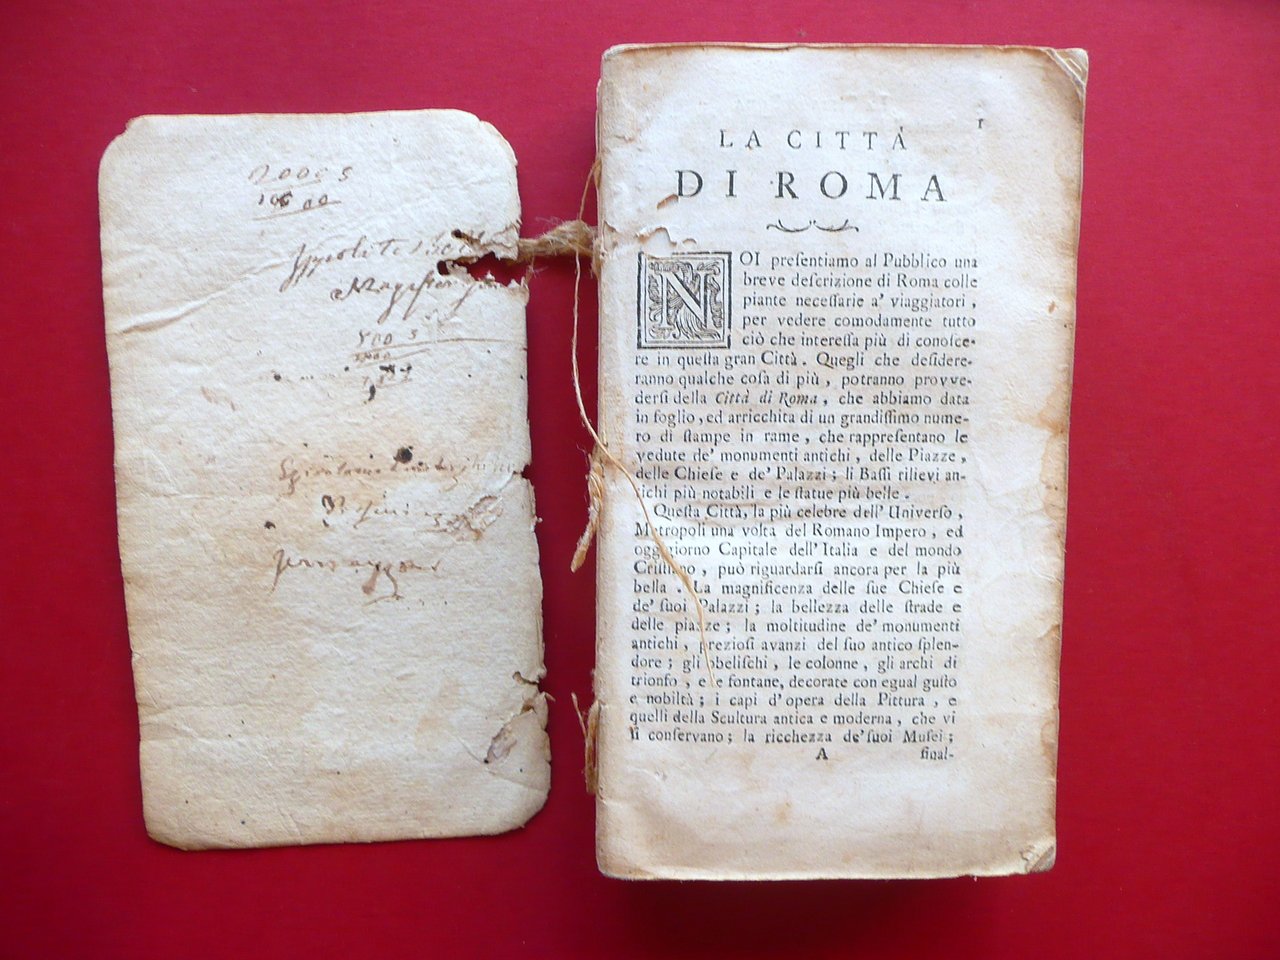 2000 s
800 s
LA CITTÀ
1
DI ROMA
NOI preſentiamo al Pubblico una
breve deſcrizione di Roma colle
piante neceſſarie a' viaggiatori,
per vedere comodamente tutto
ciò che intereſſa più di conoſce-
re in queſta gran Città. Quegli che deſidere-
ranno qualche coſa di più, potranno provve-
derſi della Città di Roma, che abbiamo data
in foglio, ed arricchita di un grandiſſimo nume-
ro di ſtampe in rame, che rappreſentano le
vedute de' monumenti antichi, delle Piazze,
delle Chieſe e de' Palazzi; li Baſſi rilievi an-
tichi più notabili e le ſtatue più belle.
Queſta Città, la più celebre dell' Univerſo,
Metropoli una volta del Romano Impero, ed
oggigiorno Capitale dell' Italia e del mondo
Criſtiano, può riguardarſi ancora per la più
bella. La magnificenza delle ſue Chieſe e
de' ſuoi Palazzi; la bellezza delle ſtrade e
delle piazze; la moltitudine de' monumenti
antichi, prezioſi avanzi del ſuo antico ſplen-
dore; gli obeliſchi, le colonne, gli archi di
trionfo, e le fontane, decorate con egual guſto
e nobiltà; i capi d' opera della Pittura, e
quelli della Scultura antica e moderna, che vi
ſi conſervano; la ricchezza de' ſuoi Muſei;
A
final-